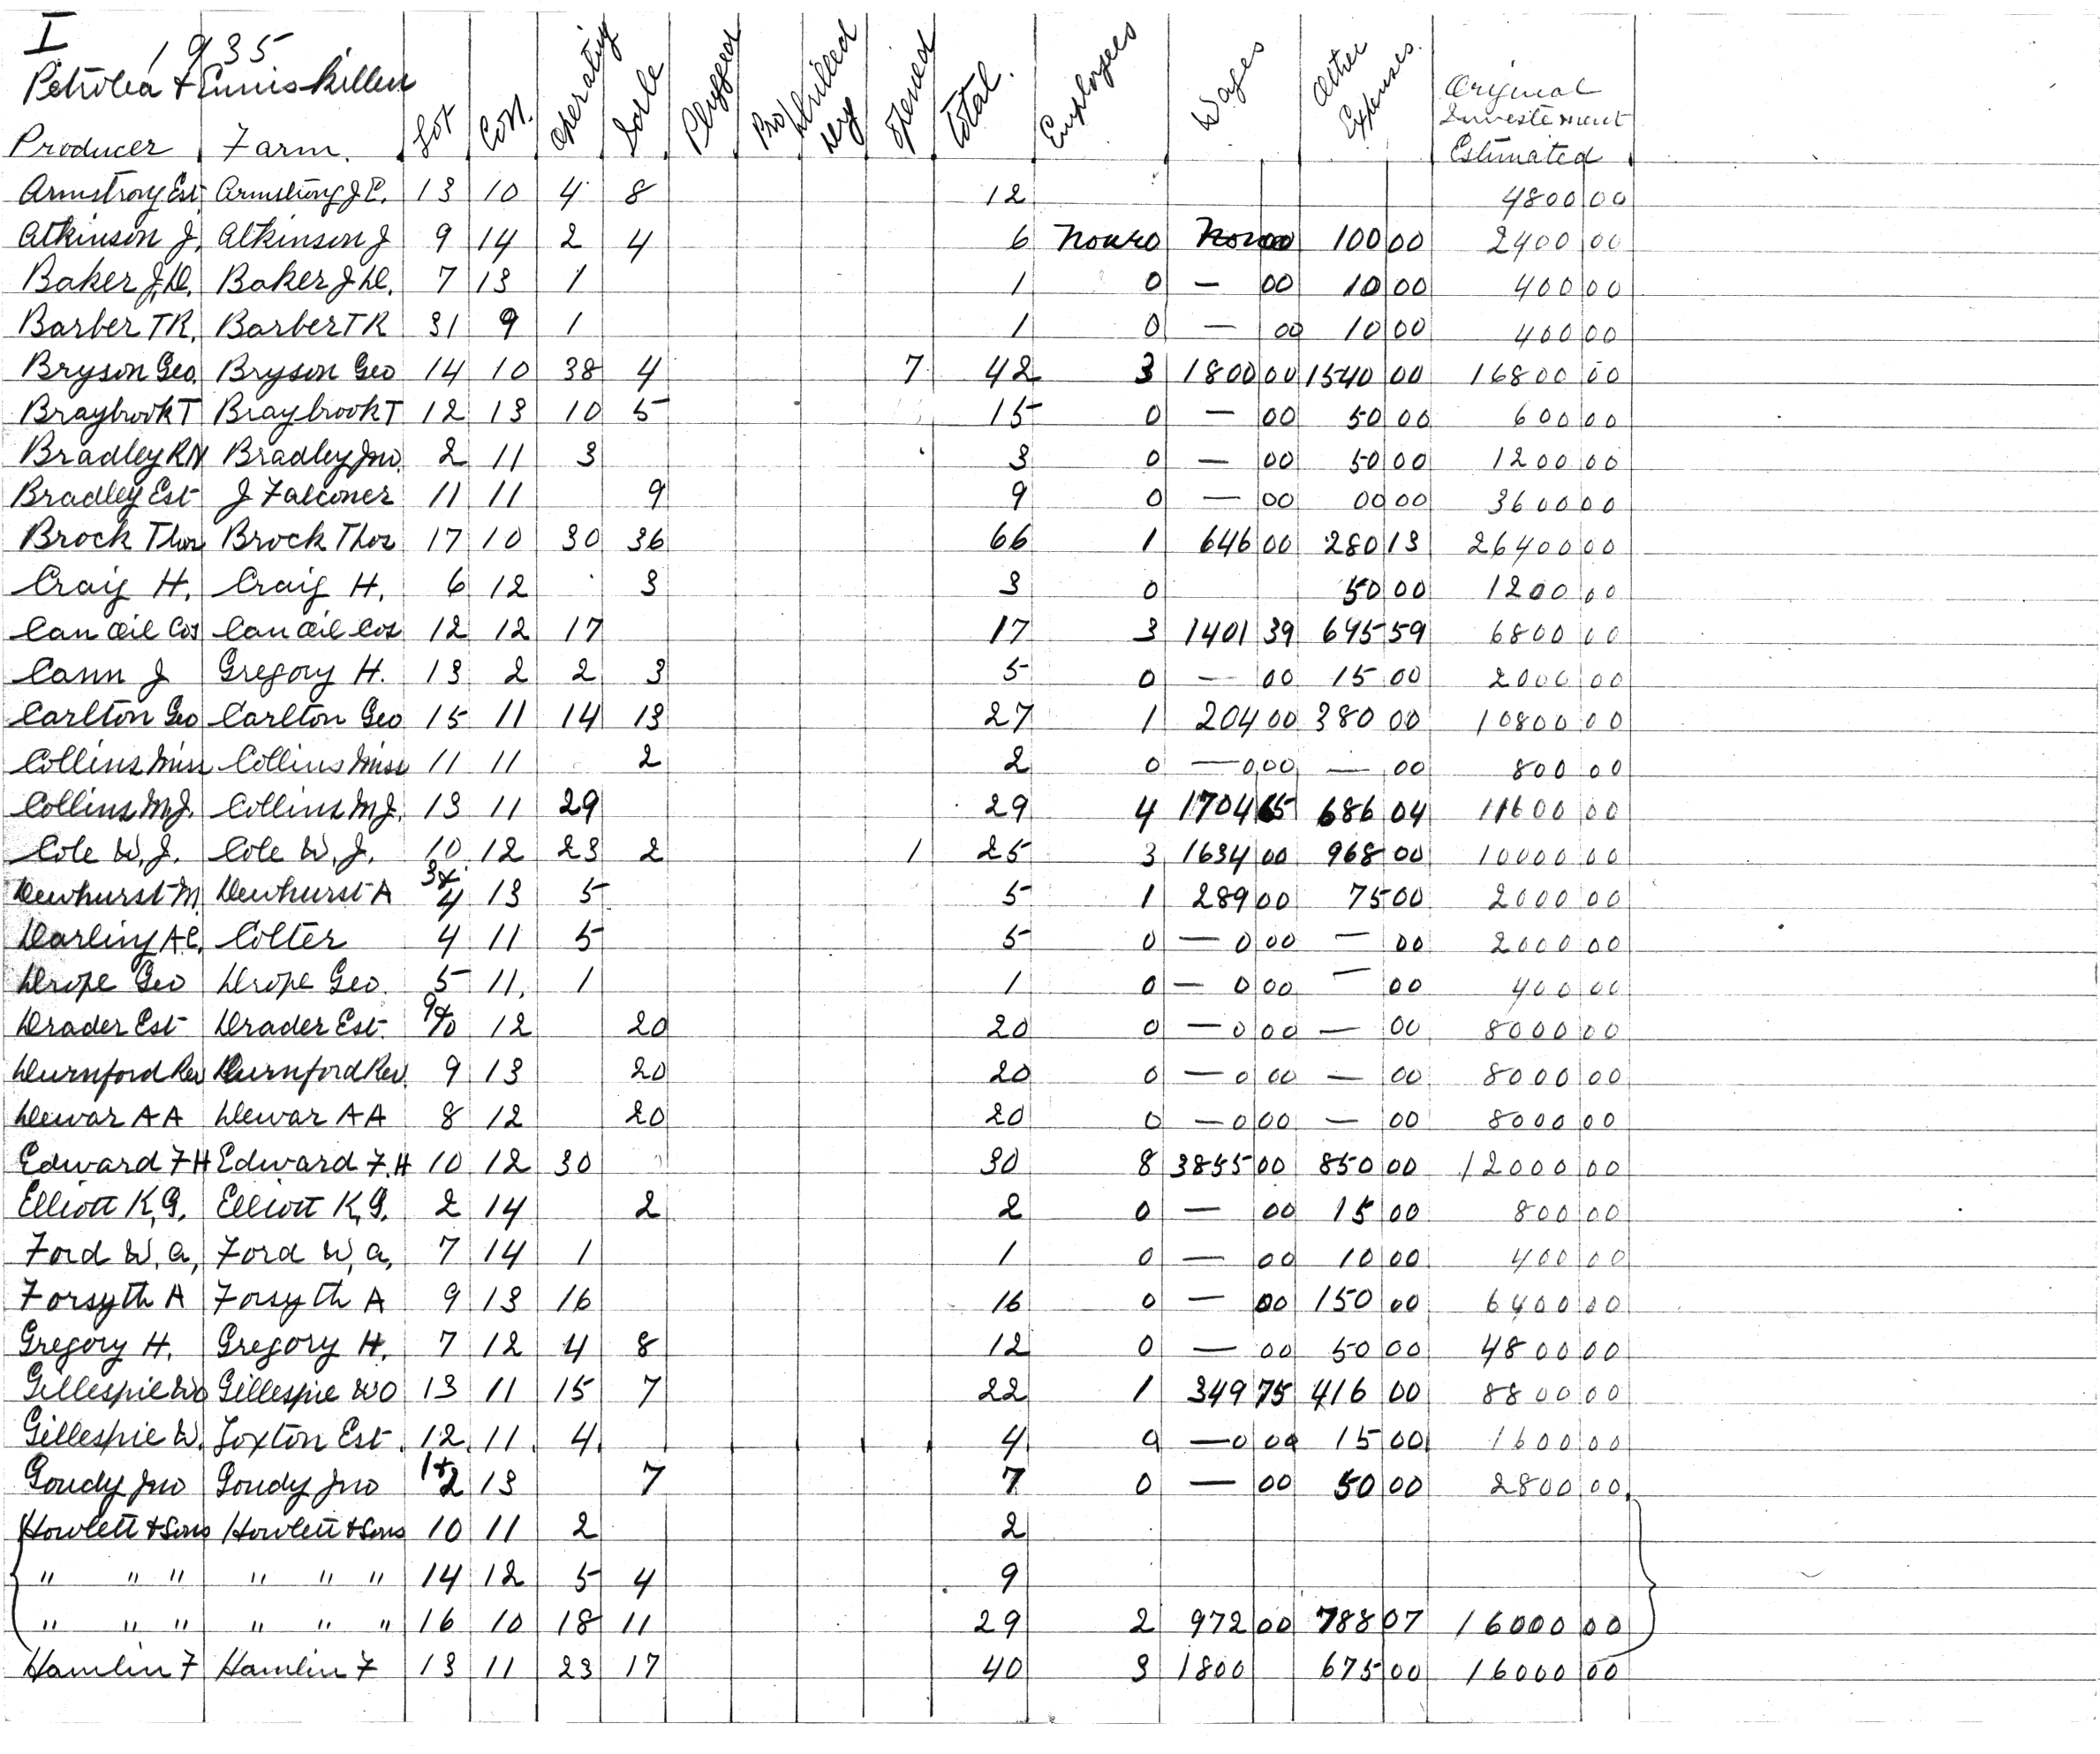 I 1935
Petrolea & Enniskillen
Producer Farm. Lot Con. Operating Plugged Drilled Dry Opened Total. Employees Wages Other Expenses. Original Investement Estimated
Armstrong Est. Armstrong J.E. 13 10 4 8 12 4800 00
Atkinson J. Atkinson J 9 14 2 4 6 100 00 2400 00
Baker J.D. Baker J.D. 7 13 1 1 0 — 00 10 00 400 00
Barber TR. Barber TR 31 9 1 1 0 — 00 10 00 400 00
Bryson Geo. Bryson Geo 14 10 38 4 7 42 3 1800 00 1540 00 16800 00
Braybrook T Braybrook T 12 13 10 5 15 0 — 00 50 00 600 00
Bradley RN Bradley Jno. 2 11 3 3 0 — 00 50 00 1200 00
Bradley Est J Falconer 11 11 9 9 0 — 00 00 00 3600 00
Brock Thos Brock Thos 17 10 30 36 66 1 646 00 280 13 26400 00
Craig H. Craig H. 6 12 3 3 0 50 00 1200 00
Can Oil Cos Can Oil Cos 12 12 17 17 3 1401 39 695 59 6800 00
Cann J Gregory H. 13 2 2 3 5 0 — 00 15 00 2000 00
Carlton Geo Carlton Geo 15 11 14 13 27 1 204 00 380 00 10800 00
Collins Miss Collins Miss 11 11 2 2 0 — 0 00 — 00 800 00
Collins M.J. Collins M.J. 13 11 29 29 4 1704 65 686 04 11600 00
Cole W.J. Cole W.J. 10 12 23 2 1 25 3 1634 00 968 00 10000 00
Dewhurst M. Dewhurst A 3& 4 13 5 5 1 289 00 75 00 2000 00
Darling A.C. Colter 4 11 5 5 0 — 0 00 — 00 2000 00
Drope Geo Drope Geo. 5 11. 1 1 0 — 0 00 — 00 400 00
Drader Est Drader Est. 9&10 12 20 20 0 — 0 00 — 00 8000 00
Durnford Rev Durnford Rev. 9 13 20 20 0 — 0 00 — 00 8000 00
Dewar AA Dewar AA 8 12 20 20 0 — 0 00 — 00 8000 00
Edward F H Edward F.H 10 12 30 30 8 3855 00 850 00 12000 00
Elliott K.G. Elliott K.G. 2 14 2 2 0 — 00 15 00 800 00
Ford W.A, Ford W,A, 7 14 1 1 0 — 00 10 00 400 00
Forsyth A Forsyth A 9 13 16 16 0 — 00 150 00 6400 00
Gregory H. Gregory H. 7 12 4 8 12 0 — 00 50 00 4800 00
Gillespie WO Gillespie WO 13 11 15 7 22 1 349 75 416 00 8800 00
Gillespie W. Est. 12. 11. 4. 4 0 — 0 00 15 00 1600 00
Goudy Jno Goudy Jno 1&2 13 7 7 0 — 00 50 00 2800 00
Howlett & Sons Howlett & Sons 10 11 2 2
" " " " " " 14 12 5 4 9
" " " " " " 16 10 18 11 29 2 972 00 788 07 16000 00
Hamlin F Hamlin F 13 11 23 17 40 3 1800 675 00 16000 00